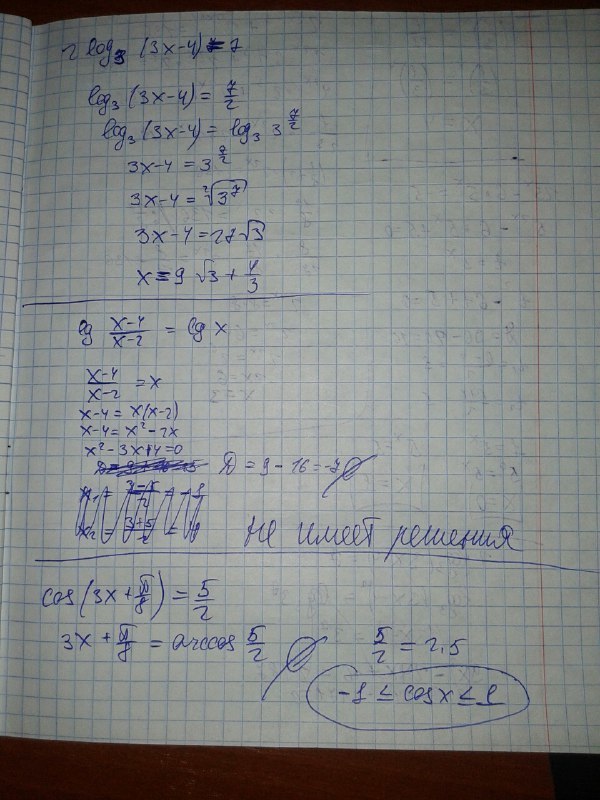 2 log₃ (3x-4) = 7
log₃ (3x-4) = 7/2
log₃ (3x-4) = log₃ 3^(7/2)
3x-4 = 3^(7/2)
3x-4 = ²√(3⁷)
3x-4 = 27√3
x = 9√3 + 4/3
lg (x-4)/(x-2) = lg x
(x-4)/(x-2) = x
x-4 = x(x-2)
x-4 = x² - 2x
x² - 3x + 4 = 0
D = 9 - 16 = -7 ∅
не имеет решения
cos(3x + π/8) = 5/2
3x + π/8 = arccos 5/2 ∅ 5/2 = 2,5
-1 ≤ cos x ≤ 1